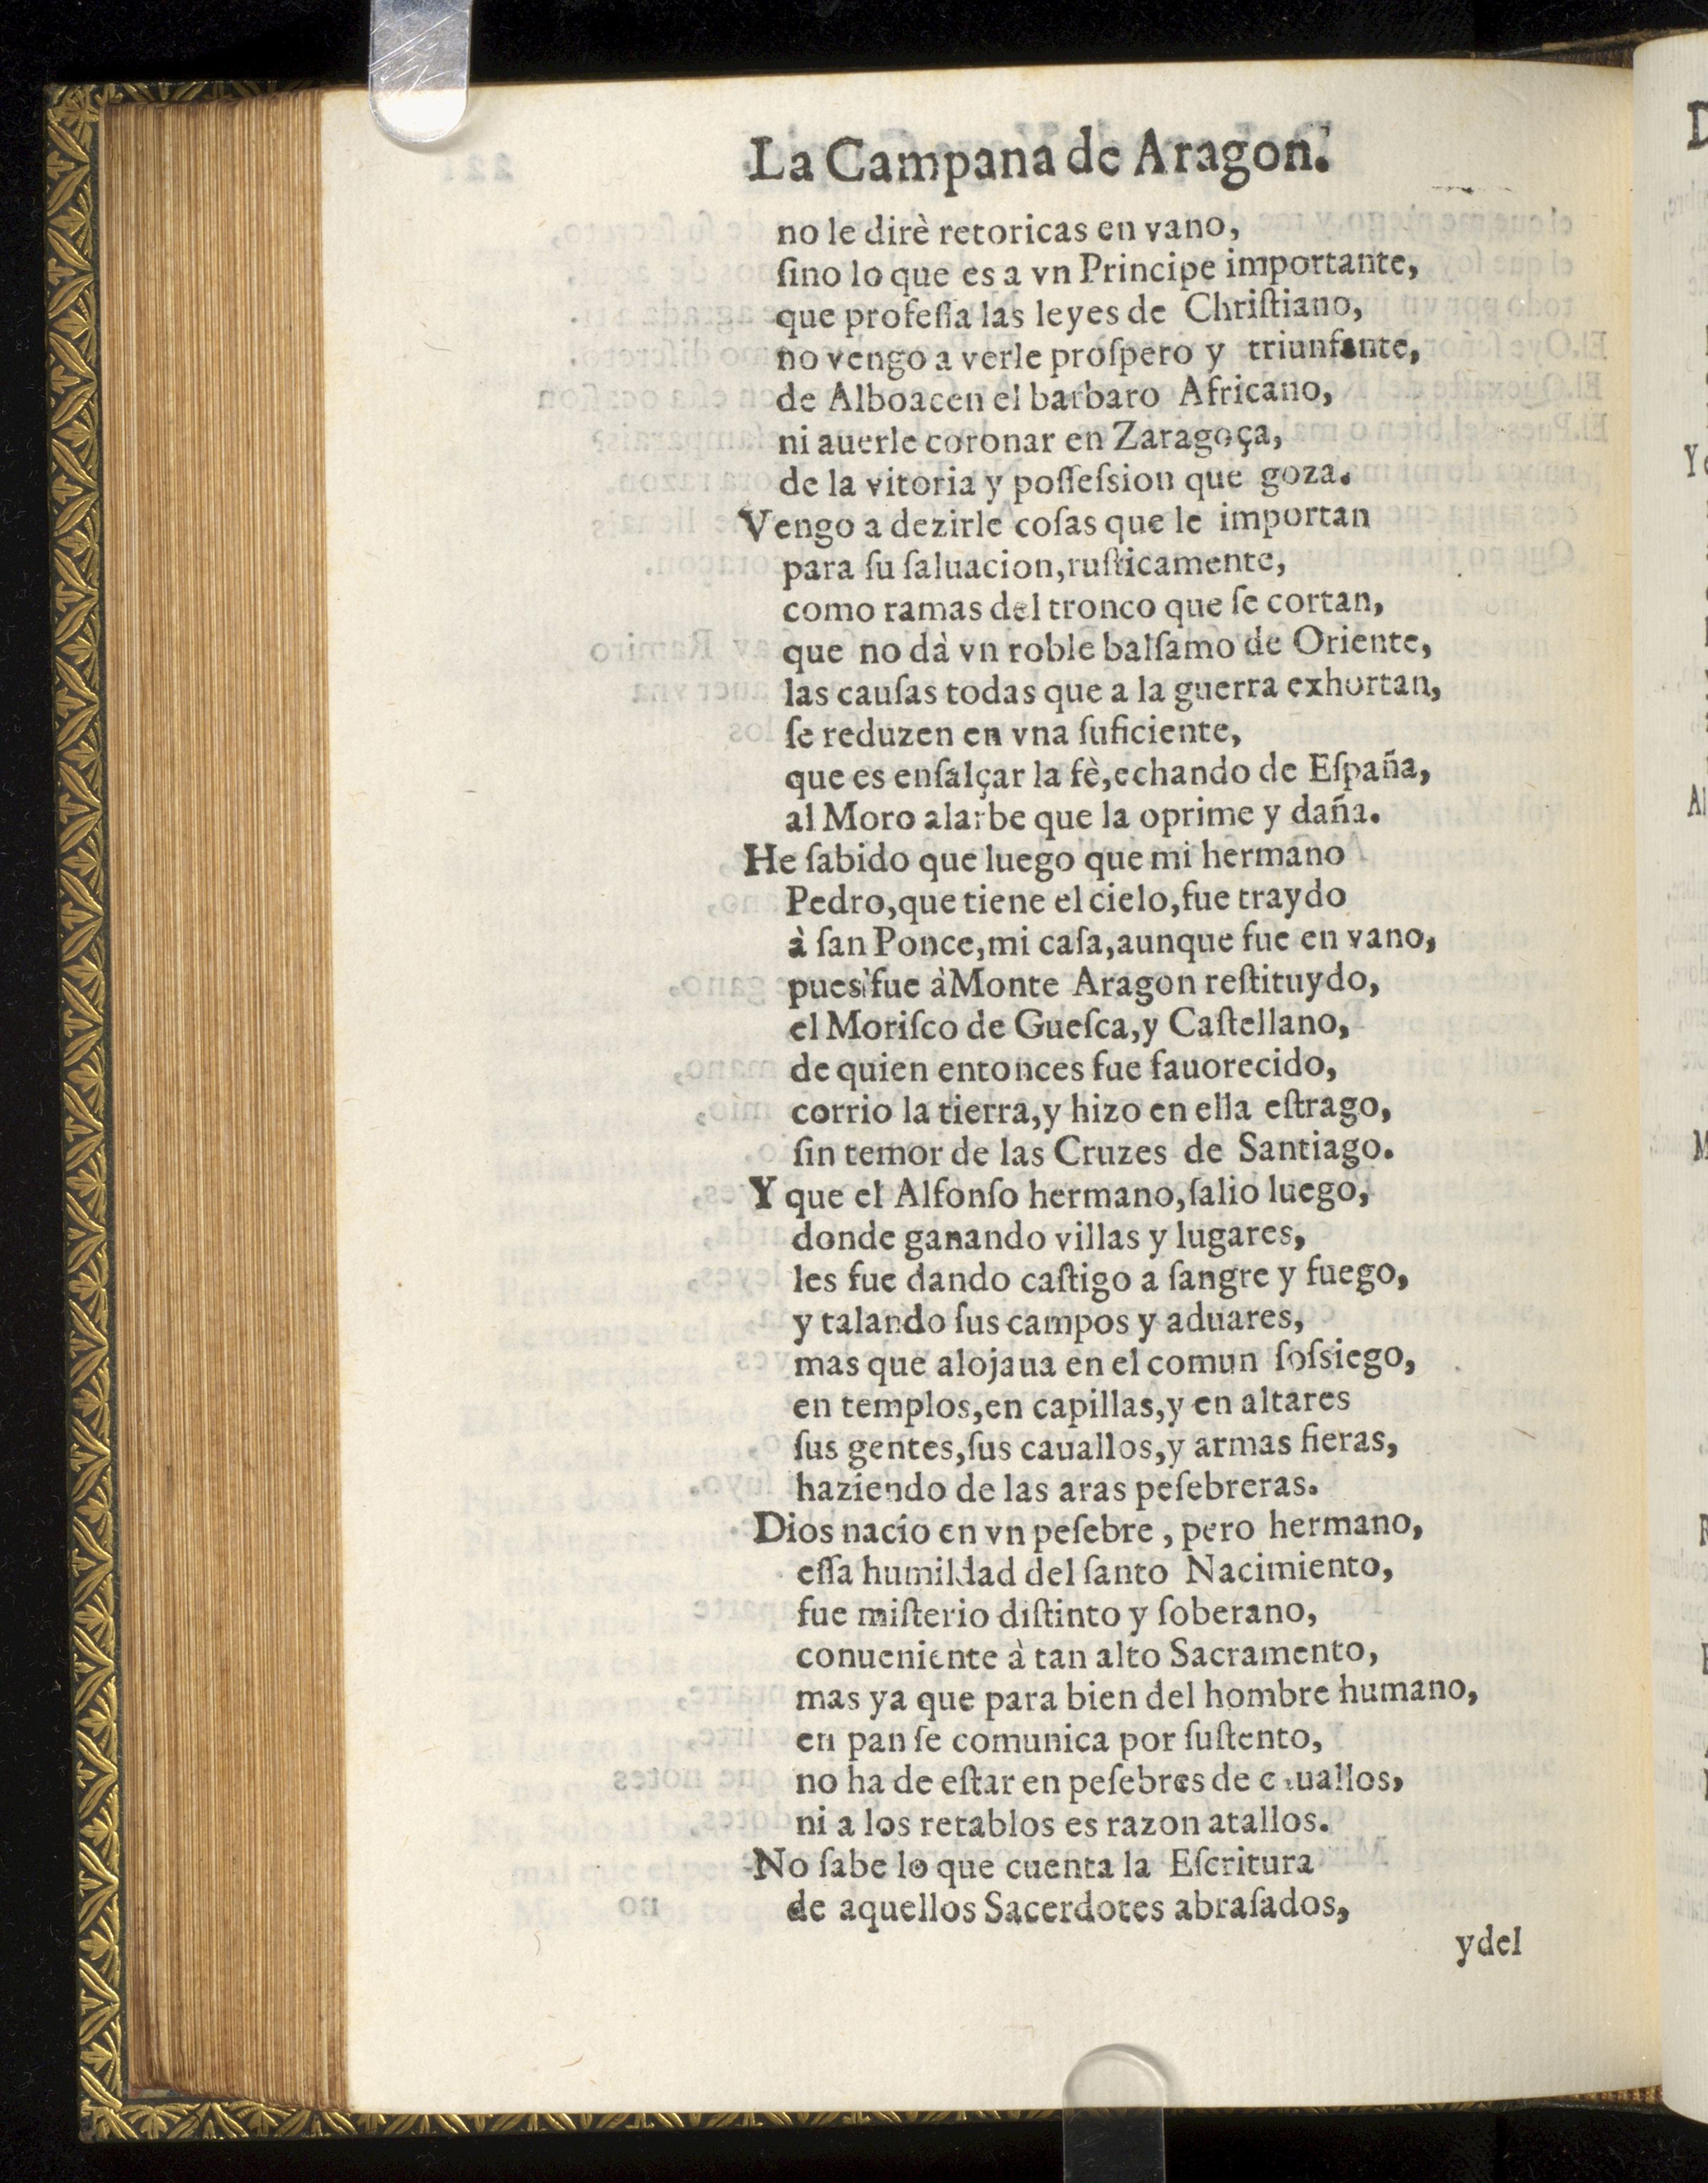 La Campana de Aragon.
no le dirè retoricas en vano,
ſino lo que es a vn Principe importante,
que profeſſa las leyes de Chriſtiano,
no vengo a verle proſpero y triunfante,
de Alboacen el barbaro Africano,
ni auerle coronar en Zaragoça,
de la vitoria y poſſeſsion que goza.
Vengo a dezirle coſas que le importan
para ſu ſaluacion,ruſticamente,
como ramas del tronco que ſe cortan,
que no dà vn roble balſamo de Oriente,
las cauſas todas que a la guerra exhortan,
ſe reduzen en vna ſuficiente,
que es enſalçar la fè,echando de Eſpaña,
al Moro alarbe que la oprime y daña.
He ſabido que luego que mi hermano
Pedro,que tiene el cielo,fue traydo
à ſan Ponce,mi caſa,aunque fue en vano,
pues fue àMonte Aragon reſtituydo,
el Moriſco de Gueſca,y Caſtellano,
de quien entonces fue fauorecido,
corrio la tierra,y hizo en ella eſtrago,
ſin temor de las Cruzes de Santiago.
Y que el Alfonſo hermano,ſalio luego,
donde ganando villas y lugares,
les fue dando caſtigo a ſangre y fuego,
y talando ſus campos y aduares,
mas que alojaua en el comun ſoſsiego,
en templos,en capillas,y en altares
ſus gentes,ſus cauallos,y armas fieras,
haziendo de las aras peſebreras.
Dios nacio en vn peſebre , pero hermano,
eſſa humildad del ſanto Nacimiento,
fue miſterio diſtinto y ſoberano,
conueniente à tan alto Sacramento,
mas ya que para bien del hombre humano,
en pan ſe comunica por ſuſtento,
no ha de eſtar en peſebres de cauallos,
ni a los retablos es razon atallos.
No ſabe lo que cuenta la Eſcritura
de aquellos Sacerdotes abraſados,
ydel